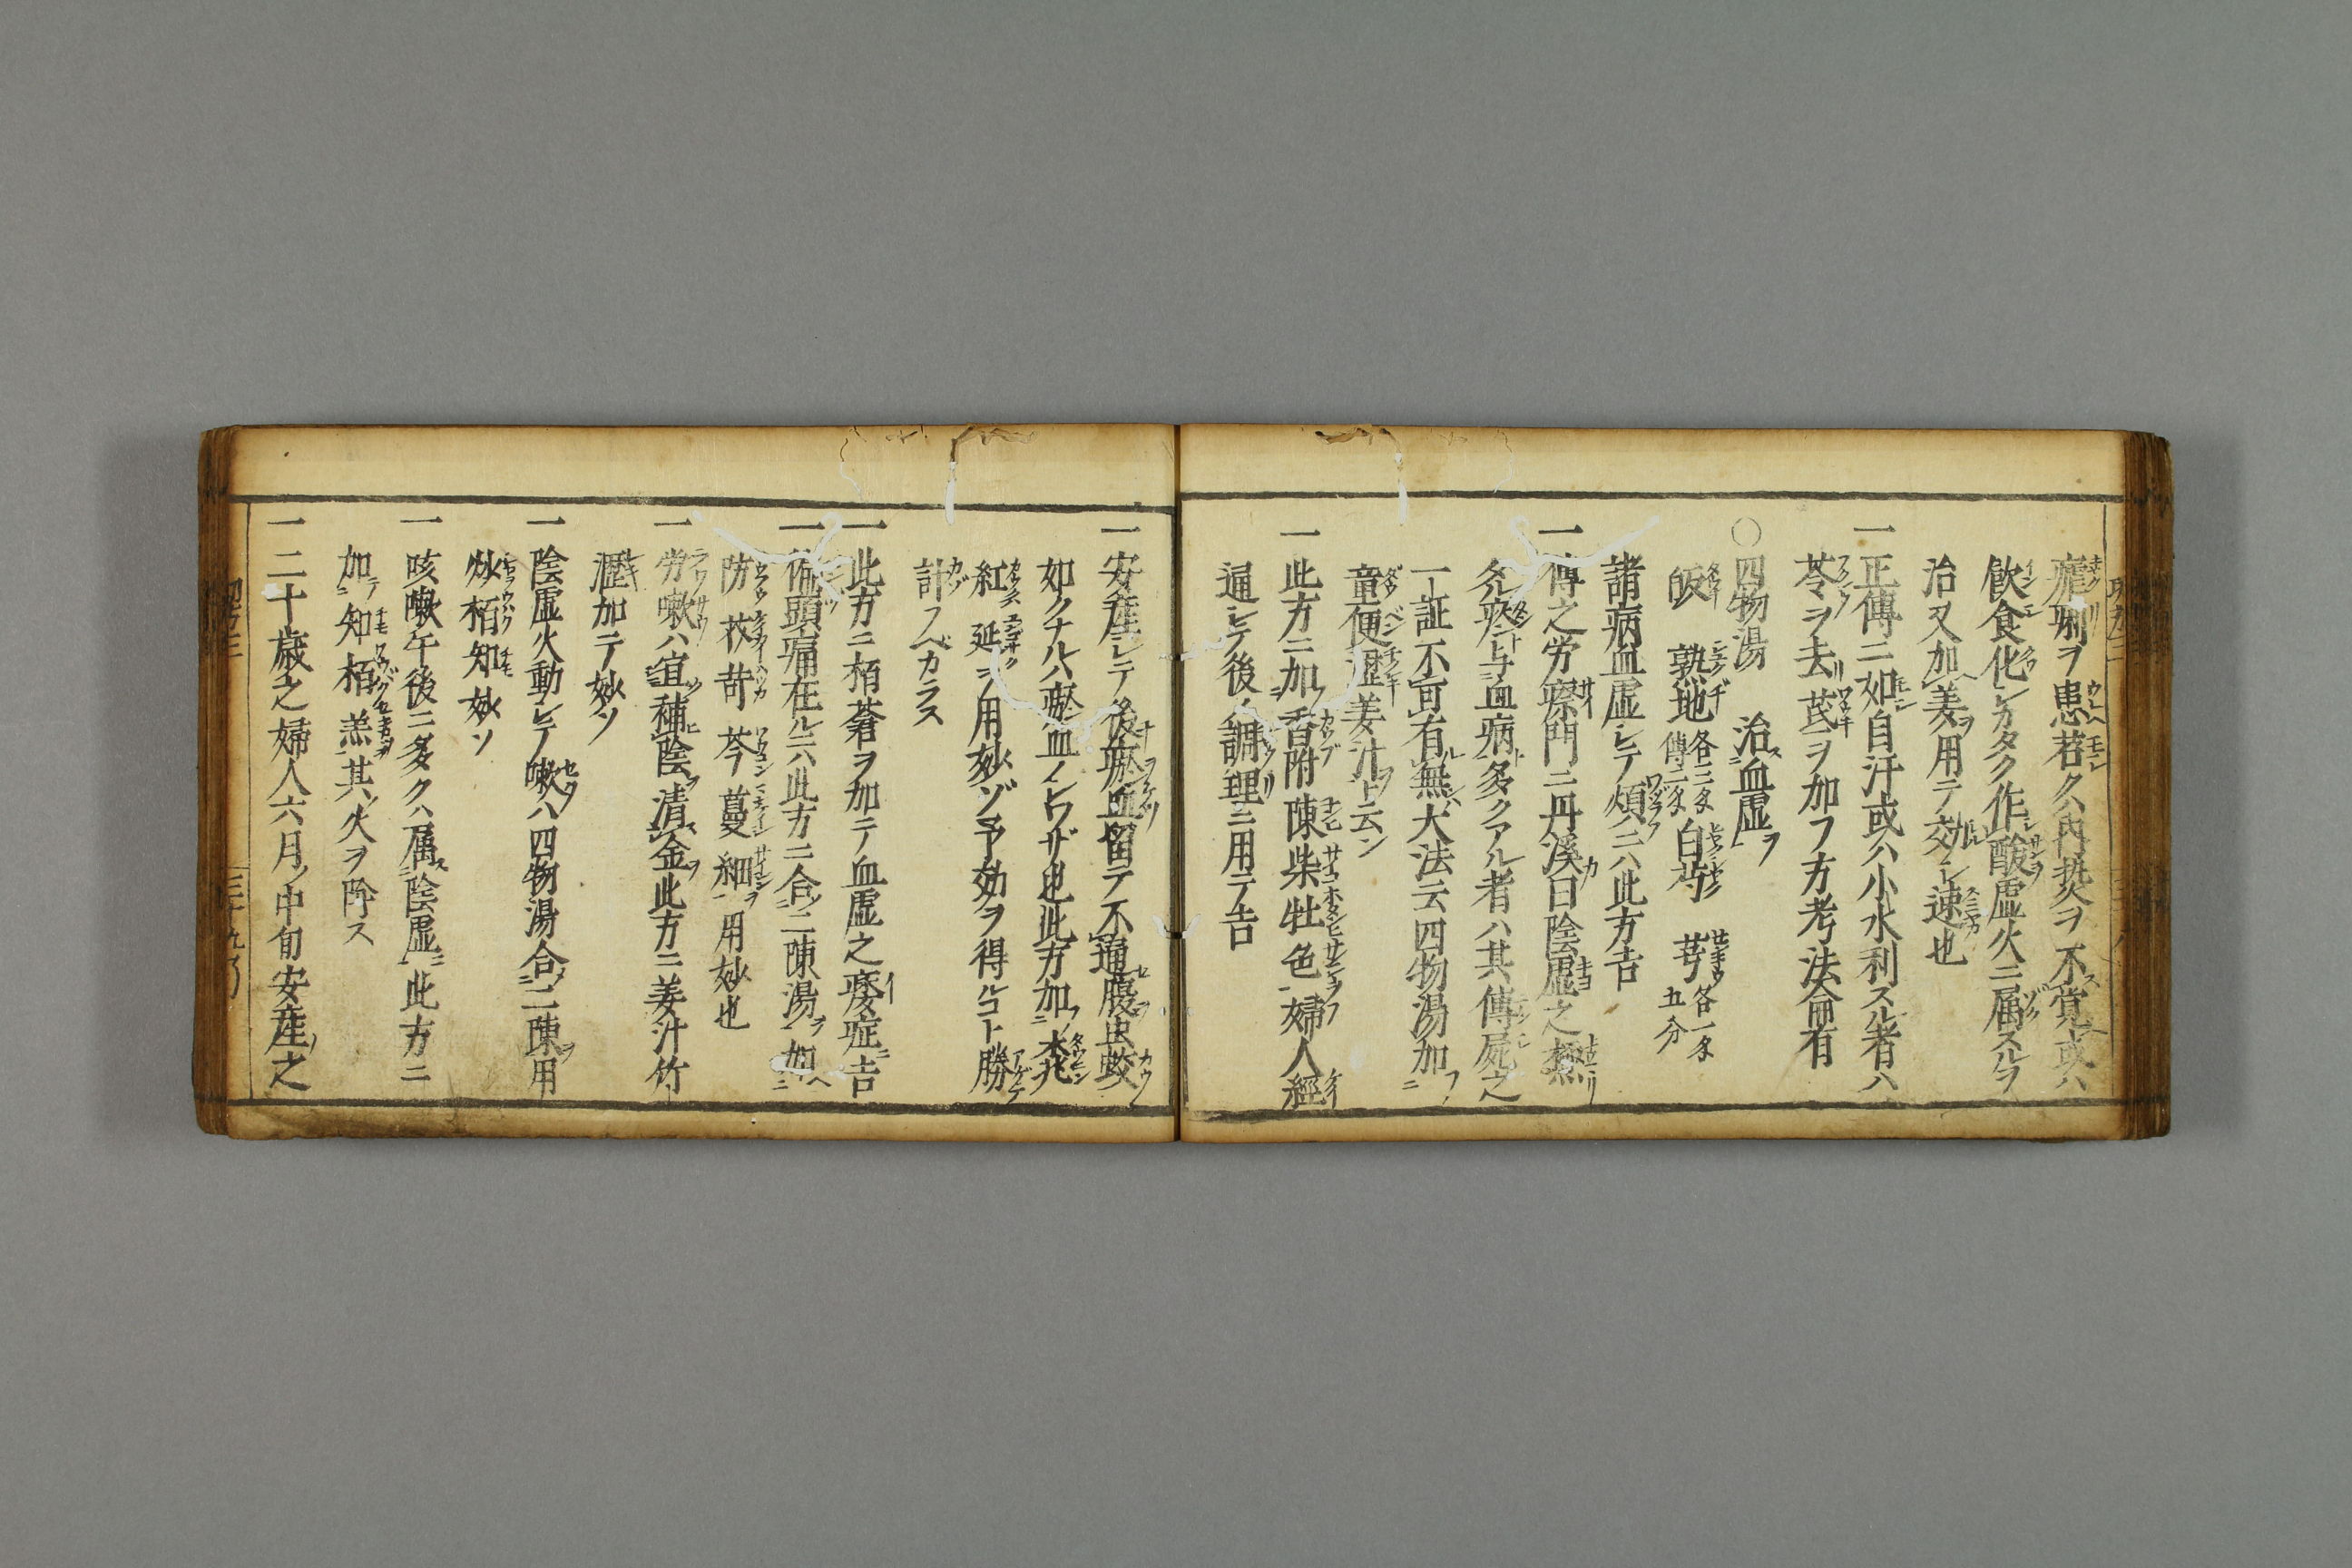 瘧痢ヲ患若クハ再抜ヲ不覚或ハ
飲食化シカタク作酸虚火ニ属スルヲ
治又加姜ヲ用テ效シ速也
一正傳ニ如自汗或ハ小水利スル者ハ
苓ヲ去芪ヲ加フ方考法侖有
○四物湯 治血虚ヲ
皈 熟地各三匁傳二匁 白芍 芎各一匁五分
諸病血虚シテ煩ニハ此方吉
一傳之労瘵門ニ丹溪曰陰虚之極
久痰ト与血病ト多クアル者ハ其傳屍之
一証不可有無大法云四物湯加フ
童便瀝姜汁ヲト云ン
一此方ニ加香附陳柴牡色婦人經
通シテ後ノ調理ニ用テ吉
一安産シテ後瘀血留テ不通腹虫蛟
如クナルハ瘀血ノシワザ也此方加木兆
紅延ヲ用妙ゾ予効ヲ得ルコト勝
計フベカラス
一此方ニ栢蒼ヲ加テ血虚之痿症ニ吉
一偏頭痛在ルニハ此方ニ合二陳湯ヲ加
防 荻 苛 芩 蔓 細ヲ用妙也
一労嗽ハ宜補陰ヲ清金ヲ此方ニ姜汁竹
瀝加テ妙ソ
一陰虚火動シテ嗽ハ四物湯合二陳ヲ用
炒栢知妙ソ
一咳嗽午後ニ多クハ属陰虚ニ此方ニ
加テ知栢羔其ノ火ヲ除ス
一二十歳之婦人六月ノ中旬安産ノ之
三十九